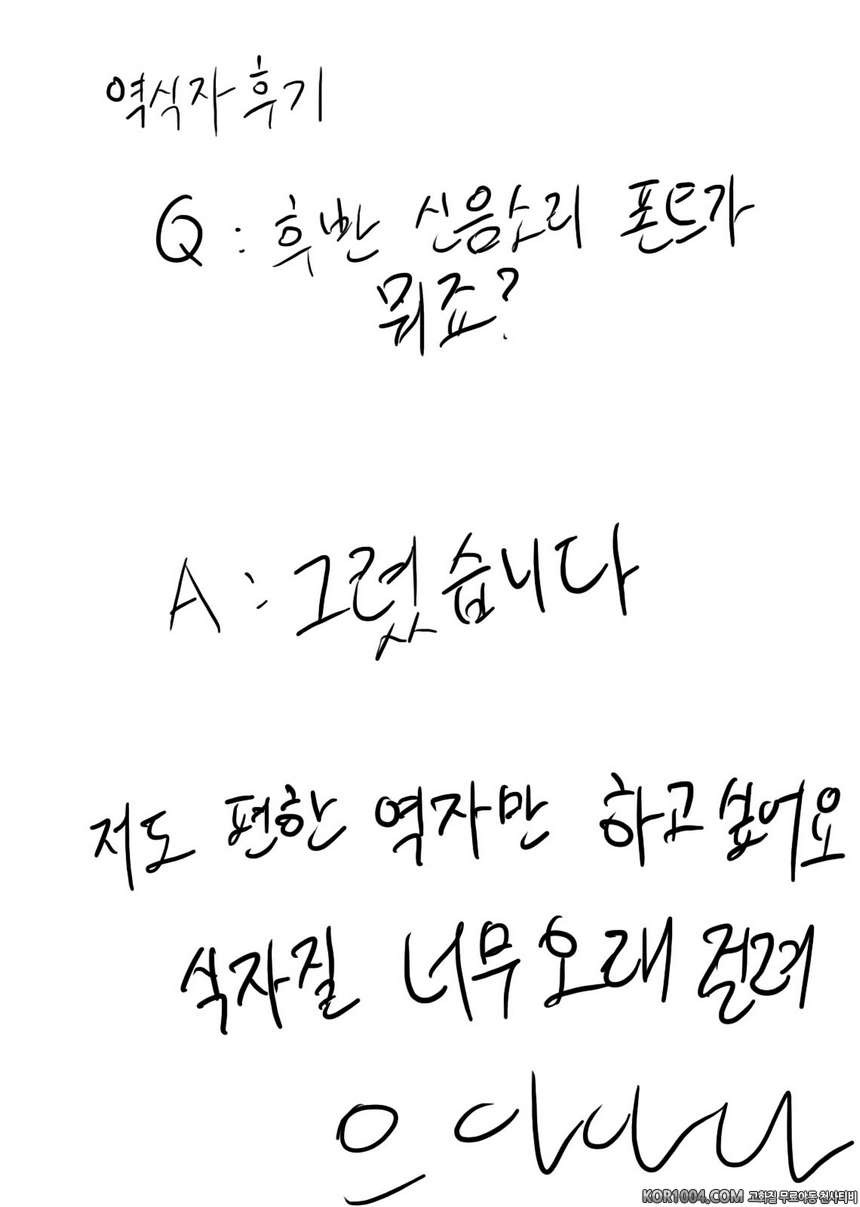 역식자 후기
Q : 후반 신음소리 폰트가
뭐죠?
A : 그렸습니다
저도 편한 역자만 하고싶어요
식자질 너무 오래 걸려
으아아아
KOR1004.COM 고화질 무료야동 천사티비